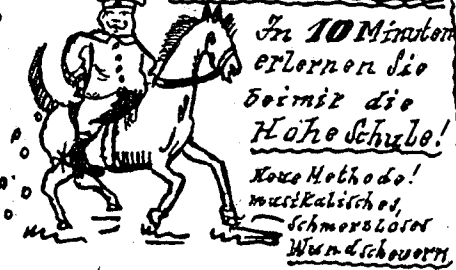 In 10 Minuten
erlernen Sie
bei mir die
Hohe Schule!
Neue Methode!
musikalisches,
schmerzloses
Wundscheuern